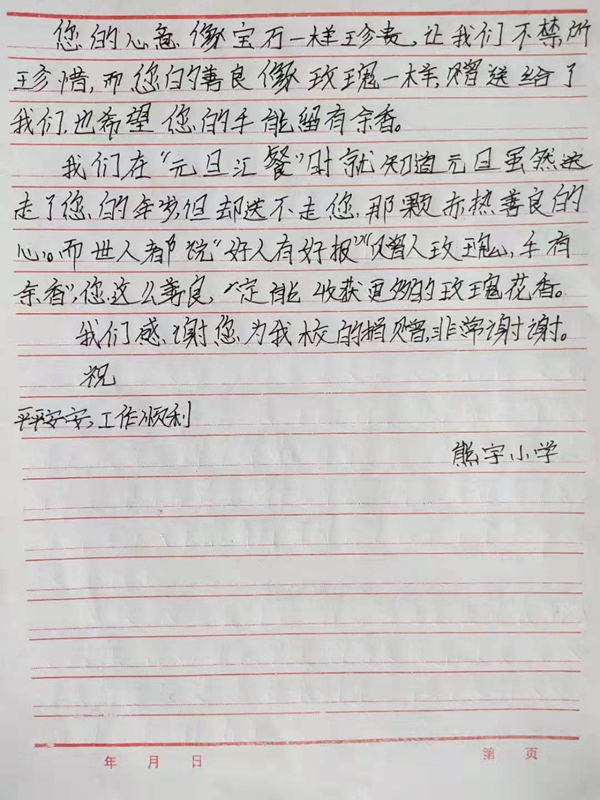 您的心意像宝石一样珍贵,让我们不禁所
珍惜,而您的善良像玫瑰一样,赠送给了
我们,也希望您的手能留有余香。
我们在“元旦汇餐”时就知道元旦虽然送
走了您的年岁,但却送不走您那颗赤热善良的
心。而世人都说“好人有好报”“赠人玫瑰,手有
余香”,您这么善良,一定能收获更多的玫瑰花香。
我们感谢您为我校的捐赠,非常谢谢。
祝
平平安安,工作顺利
熊宇小学
年 月 日
第 页